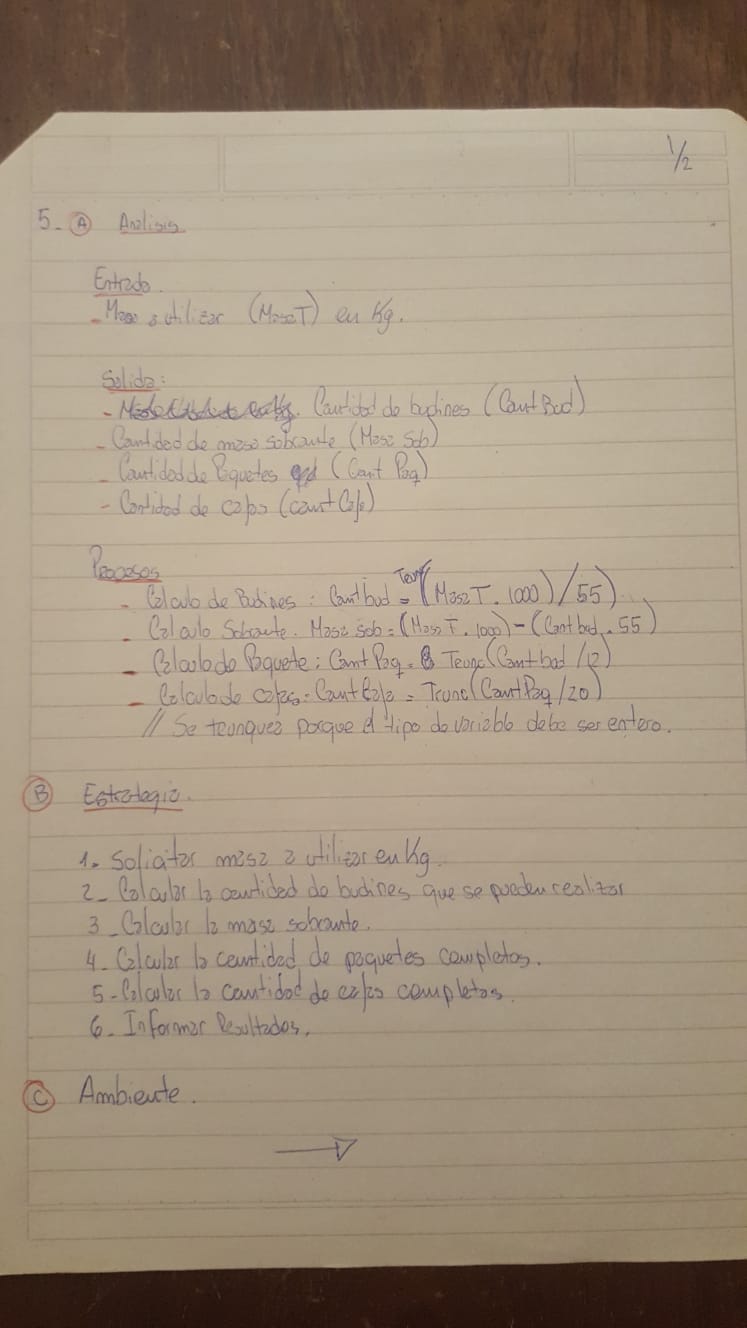 1/2
5. A Análisis
Entrada.
- Masa a utilizar (MasaT) en Kg.
Salida:
- Cantidad de budines (CantBud)
- Cantidad de masa sobrante (Masa Sob)
- Cantidad de Paquetes (Cant Paq)
- Cantidad de cajas (cantCaja)
Procesos
- Calculo de Budines : Cantbud = Trunc (MasaT . 1000) / 55)
- Calculo Sobrante. Masa sob = (Masa T . 1000) - (Cant bud . 55)
- Calculo de Paquete : Cant Paq = Trunc (Cant bud / 12)
- Calculo de cajas = Cant Caja = Trunc (Cant Paq / 20)
// Se trunquea porque el tipo de variable debe ser entero.
B Estrategia.
1. Solicitar masa a utilizar en Kg.
2- Calcular la cantidad de budines que se pueden realizar
3- Calcular la masa sobrante.
4- Calcular la cantidad de paquetes completos.
5- Calcular la cantidad de cajas completas.
6- Informar Resultados.
C Ambiente.